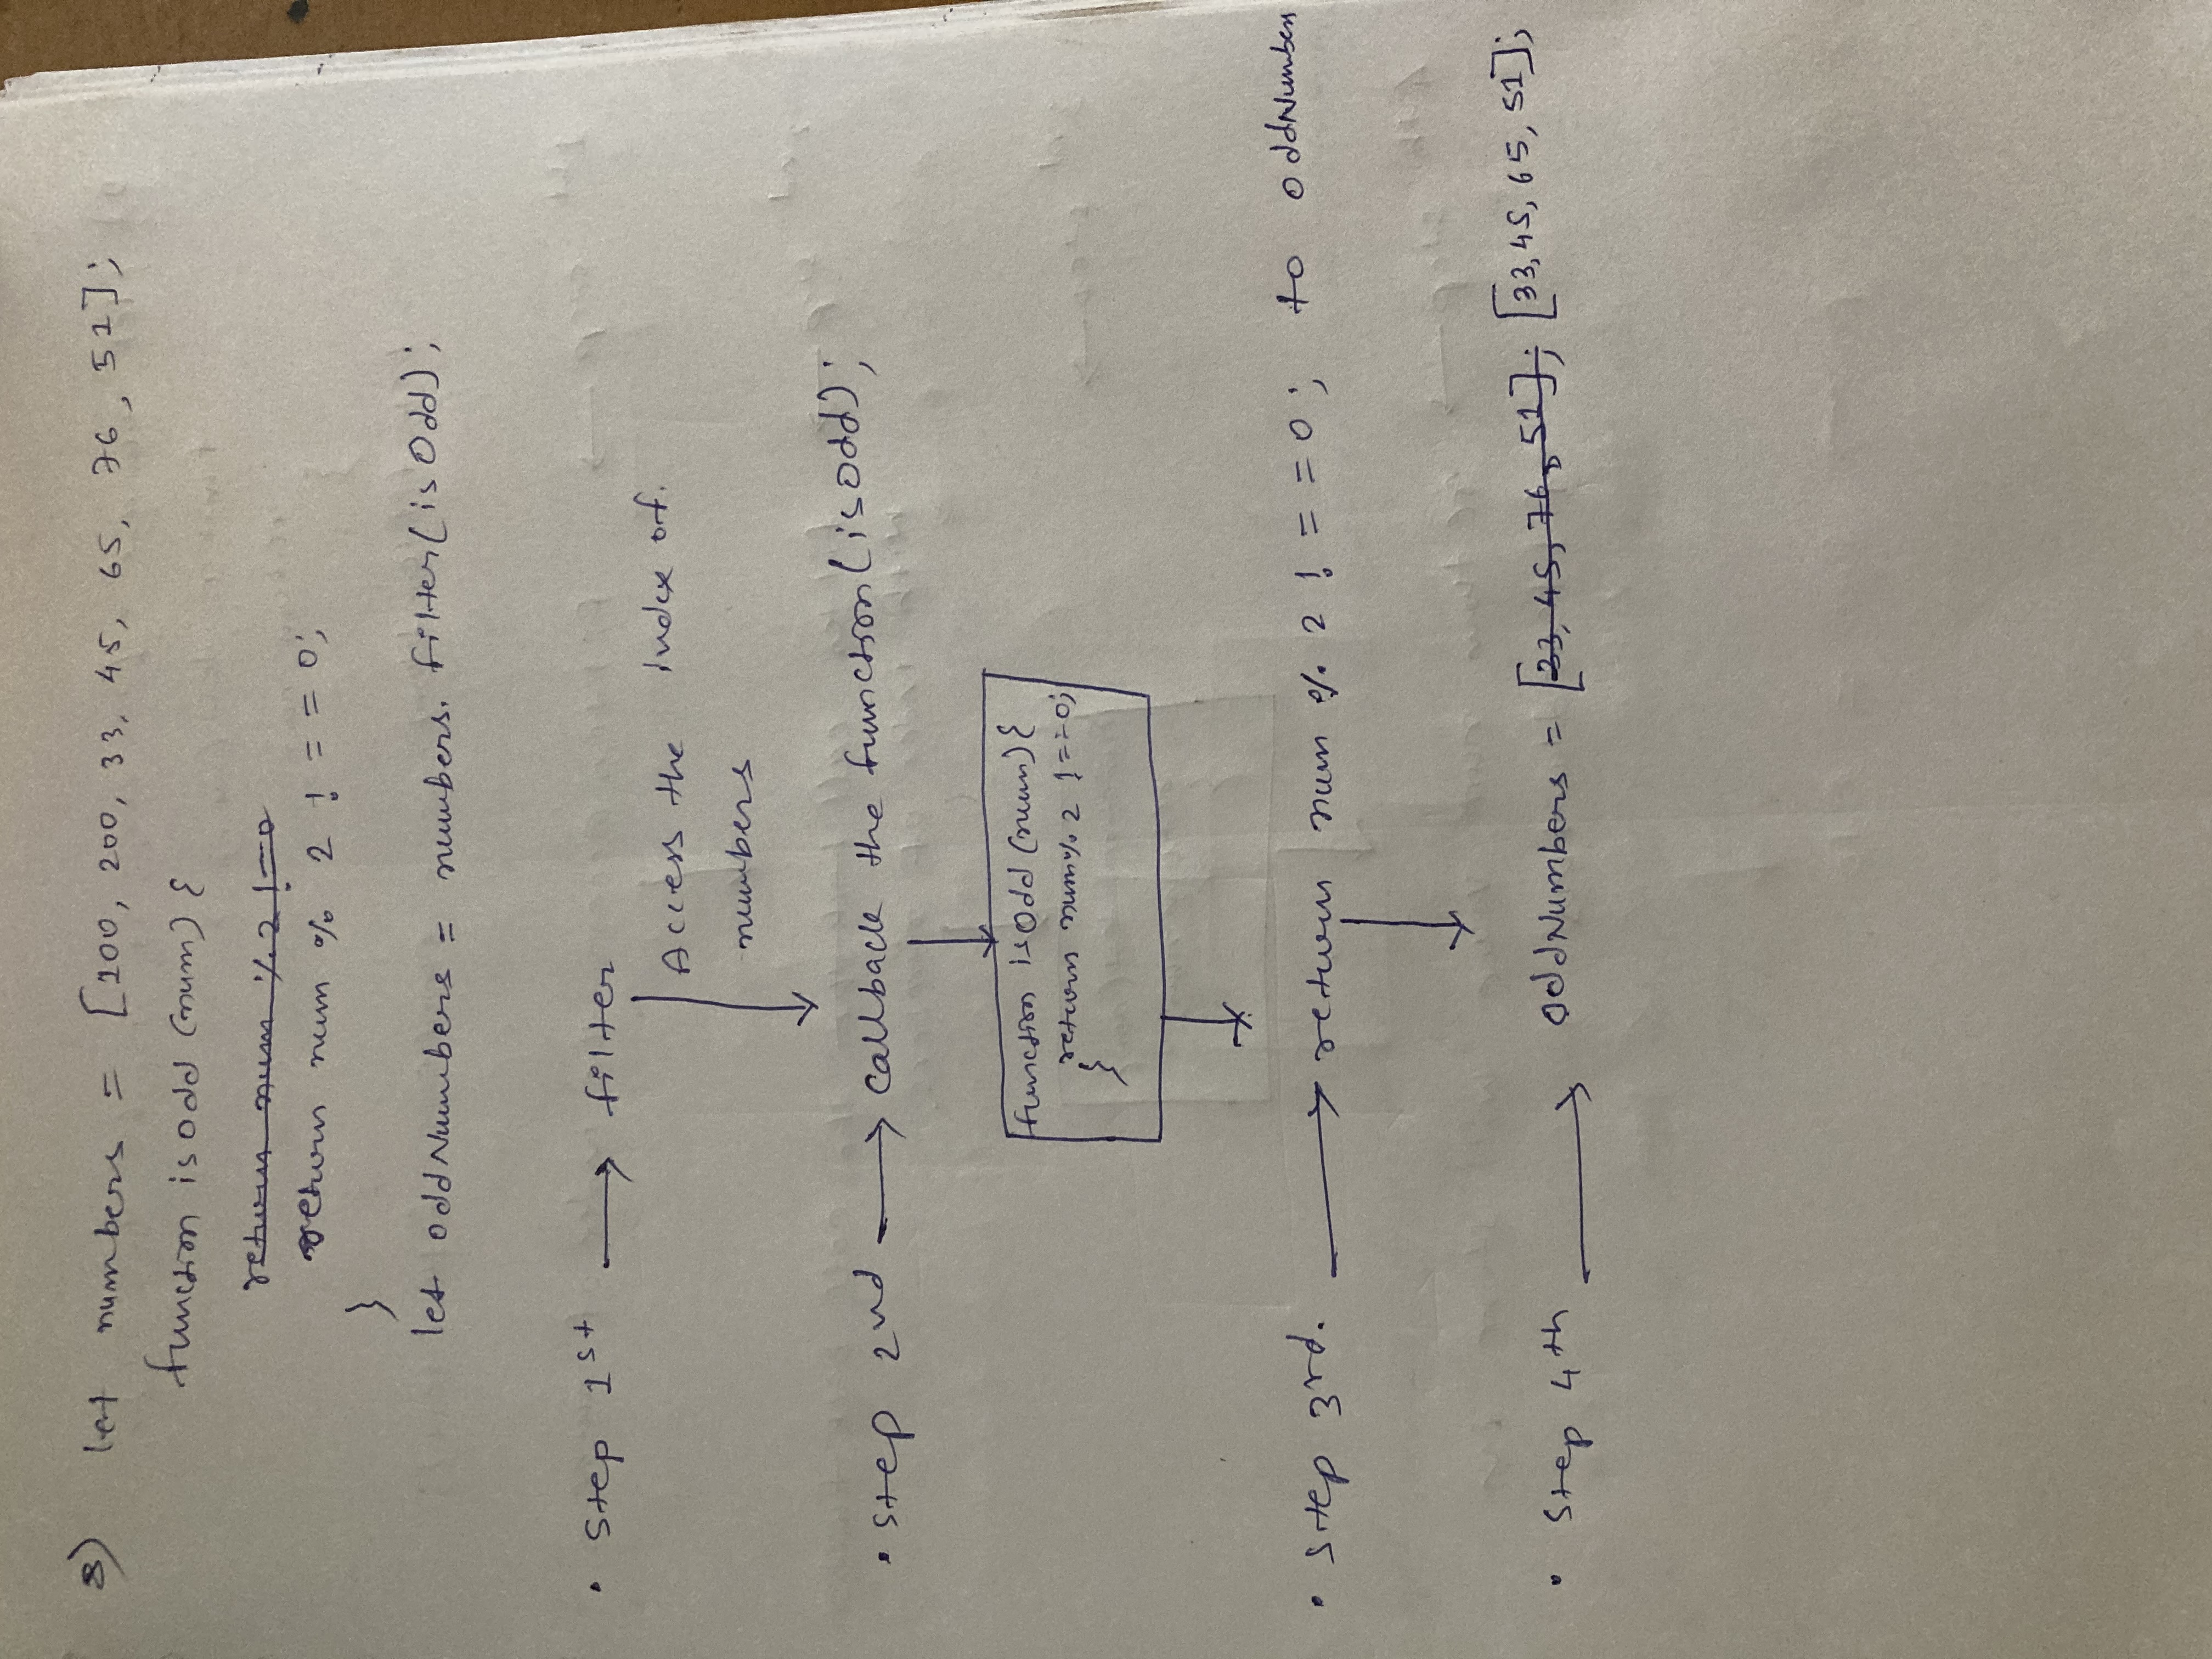 8) let numbers = [100, 200, 33, 45, 65, 76, 51];
function isOdd (num) {
return num % 2 != 0
return num % 2 ! == 0;
}
let oddNumbers = numbers. filter(isOdd);
• Step 1st → filter
Access the index of.
numbers
• Step 2nd → callback the function(isOdd);
function isOdd (num) {
return num % 2 !== 0;
}
• Step 3rd. → return num % 2 ! == 0; to oddNumbers
• Step 4th → oddNumbers = [33, 45, 76, 51]; [33, 45, 65, 51];